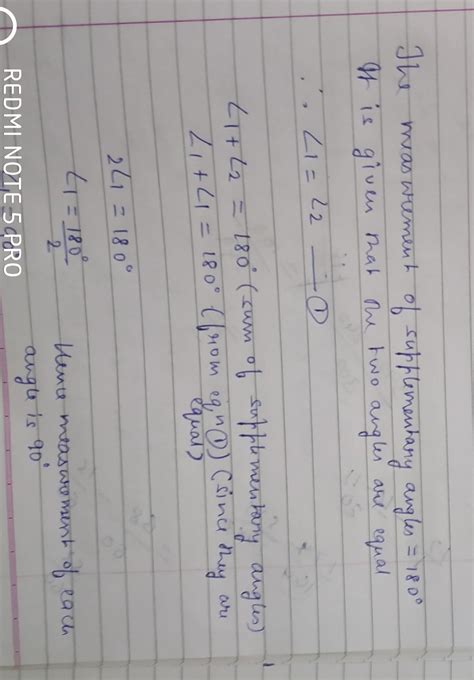 The measurement of supplementary angles = 180°
It is given that the two angles are equal
∴ ∠1 = ∠2 — ①
∠1 + ∠2 = 180° (sum of supplementary angles)
∠1 + ∠1 = 180° (from eqn ①) (since they are equal)
2∠1 = 180°
∠1 = 180°/2
Hence measurement of each
angle is 90°
REDMI NOTE 5 PRO